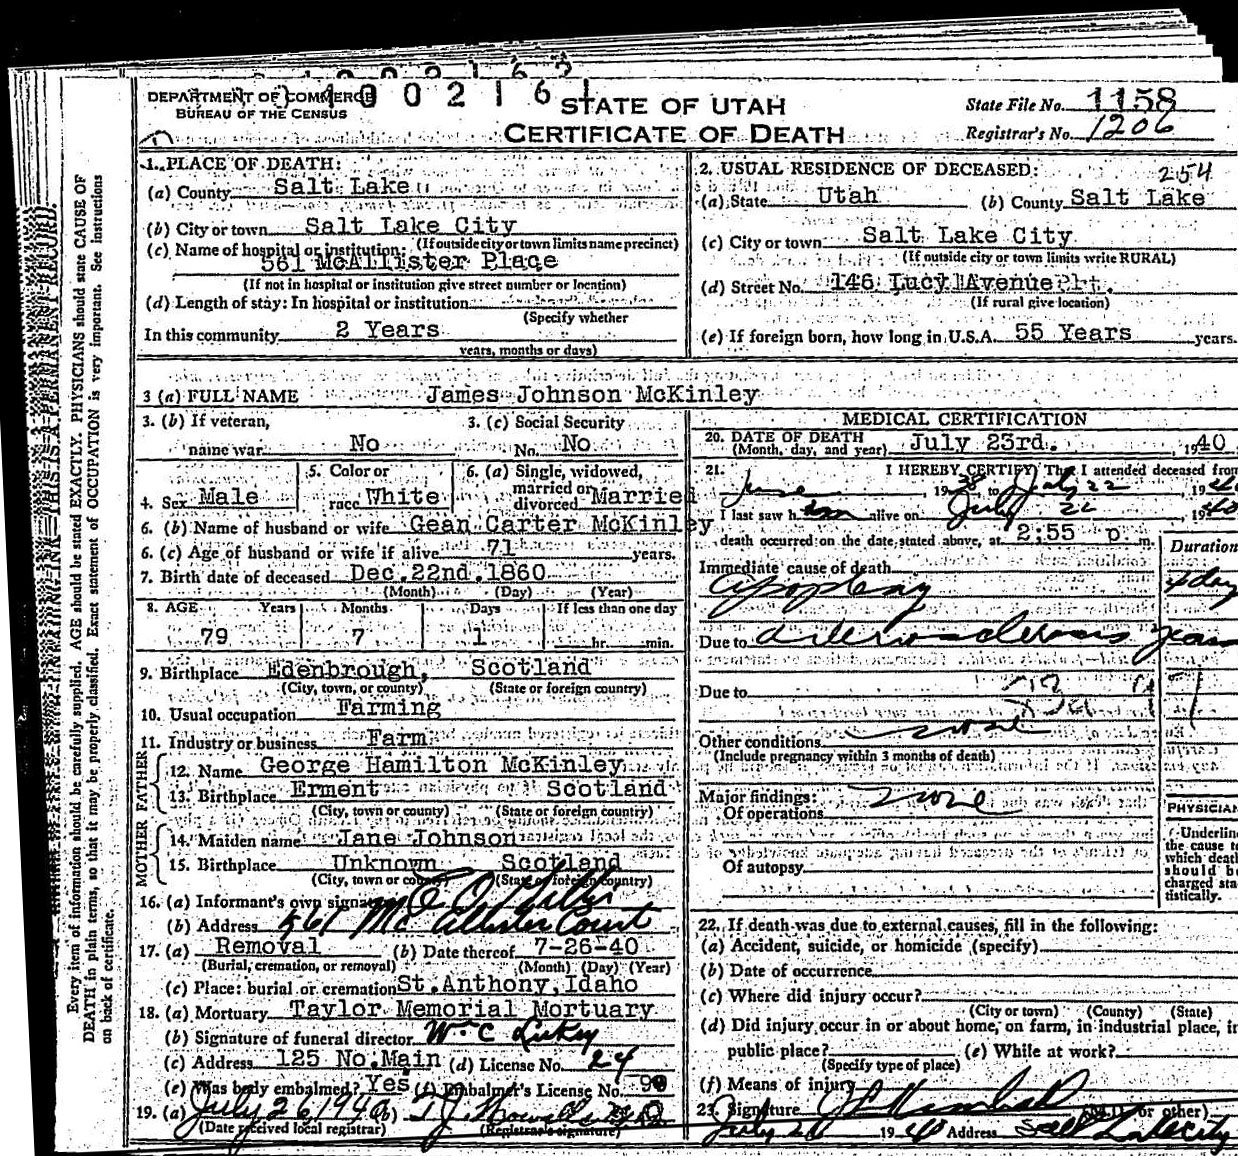 1002161
DEPARTMENT OF COMMERCE
BUREAU OF THE CENSUS
STATE OF UTAH
CERTIFICATE OF DEATH
State File No. 1158
Registrar's No. 1206
Every item of information should be carefully supplied. AGE should be stated EXACTLY. PHYSICIANS should state CAUSE OF
DEATH in plain terms, so that it may be properly classified. Exact statement of OCCUPATION is very important. See instructions
on back of certificate.
1. PLACE OF DEATH:
(a) County Salt Lake
(b) City or town Salt Lake City
(If outside city or town limits name precinct)
(c) Name of hospital or institution:
561 McAllister Place
(If not in hospital or institution give street number or location)
(d) Length of stay: In hospital or institution
(Specify whether
In this community 2 Years
years, months or days)
2. USUAL RESIDENCE OF DECEASED:
254
(a) State Utah (b) County Salt Lake
(c) City or town Salt Lake City
(If outside city or town limits write RURAL)
(d) Street No. 146 Lucy Avenue
(If rural give location)
(e) If foreign born, how long in U.S.A. 55 Years years.
3 (a) FULL NAME James Johnson McKinley
3. (b) If veteran,
name war No
3. (c) Social Security
No. No
4. Sex Male
5. Color or
race White
6. (a) Single, widowed,
married or
divorced Married
6. (b) Name of husband or wife Gean Carter McKinley
6. (c) Age of husband or wife if alive 71 years.
7. Birth date of deceased Dec. 22nd. 1860
(Month) (Day) (Year)
8. AGE Years Months Days If less than one day
79 7 1 hr. min.
9. Birthplace Edenbrough, Scotland
(City, town, or county) (State or foreign country)
10. Usual occupation Farming
11. Industry or business Farm
FATHER
12. Name George Hamilton McKinley
13. Birthplace Erment Scotland
(City, town or county) (State or foreign country)
MOTHER
14. Maiden name Jane Johnson
15. Birthplace Unknown Scotland
(City, town or county) (State or foreign country)
16. (a) Informant's own signature
(b) Address 561 McAllister Court
17. (a) Removal (b) Date thereof 7-26-40
(Burial, cremation, or removal) (Month) (Day) (Year)
(c) Place: burial or cremation St. Anthony, Idaho
18. (a) Mortuary Taylor Memorial Mortuary
(b) Signature of funeral director
(c) Address 125 No. Main (d) License No. 24
(e) Was body embalmed? Yes (f) Embalmer's License No.
19. (a) July 26 1940 (b)
(Date received local registrar) (Registrar's signature)
MEDICAL CERTIFICATION
20. DATE OF DEATH
(Month, day, and year) July 23rd. 1940
21. I HEREBY CERTIFY, That I attended deceased from
June, 1938, to July 22, 1940
I last saw him alive on July 22 1940
death occurred on the date stated above, at 2:55 p. m.
Duration
Immediate cause of death
apoplexy 4 day
Due to arteriosclerosis years
Due to
Other conditions none
(Include pregnancy within 3 months of death)
Major findings:
Of operations none
Of autopsy
PHYSICIAN
Underline
the cause to
which death
should be
charged sta-
tistically.
22. If death was due to external causes, fill in the following:
(a) Accident, suicide, or homicide (specify)
(b) Date of occurrence
(c) Where did injury occur?
(City or town) (County) (State)
(d) Did injury occur in or about home, on farm, in industrial place, in
public place? (e) While at work?
(Specify type of place)
(f) Means of injury
23. Signature (M.D. or other)
July 26 1940 Address Salt Lake City